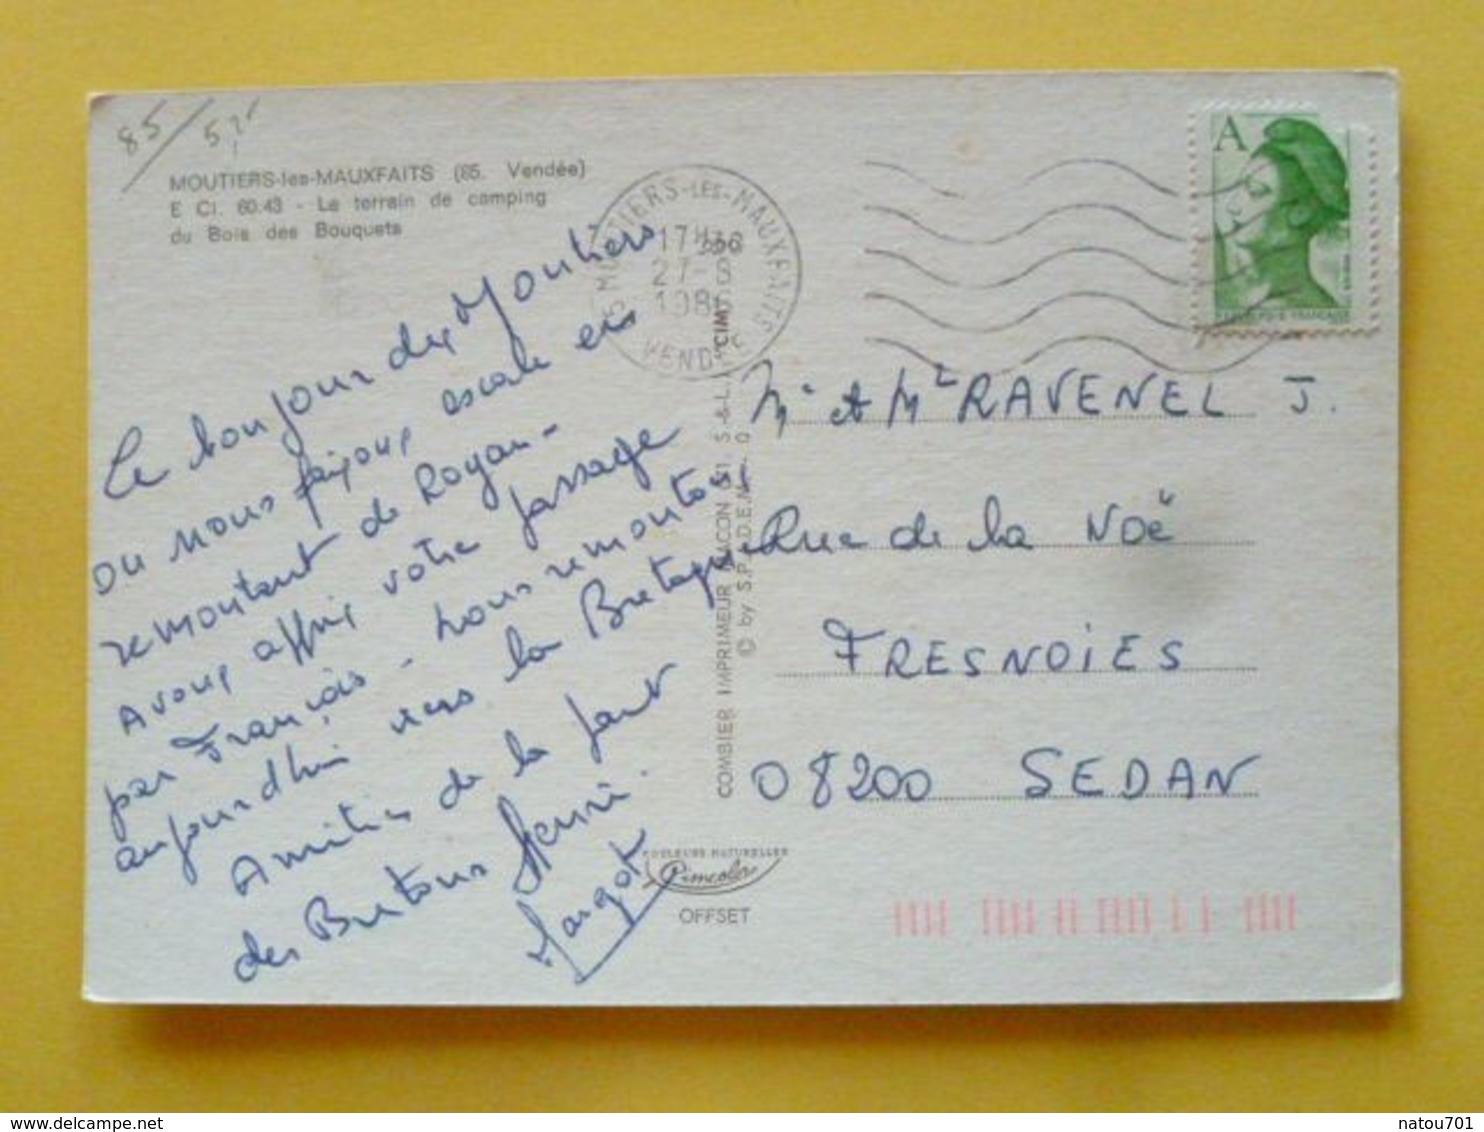 85/
MOUTIERS-les-MAUXFAITS (85. Vendée)
E Ci. 60.43 - Le terrain de camping
du Bois des Bouquets
MOUTIERS-LES-MAUXFAITS
17H
27-8
1986
VENDÉE
A
Le bonjour des Moutiers
ou nous faisons escale en
remontant de Royan -
avons appris votre passage
par François - nous remontons
aujourd'hui vers la Bretagne
Amitiés de la part
des Bretons Henri
Margot
COMBIER IMPRIMEUR MACON
© by S.P.A.D.E.M.
"CIM"
Mr et Me RAVENEL J.
Rue de la Noë
FRESNOIES
08200 SEDAN
COULEURS NATURELLES
Cimcolor
OFFSET
natou701